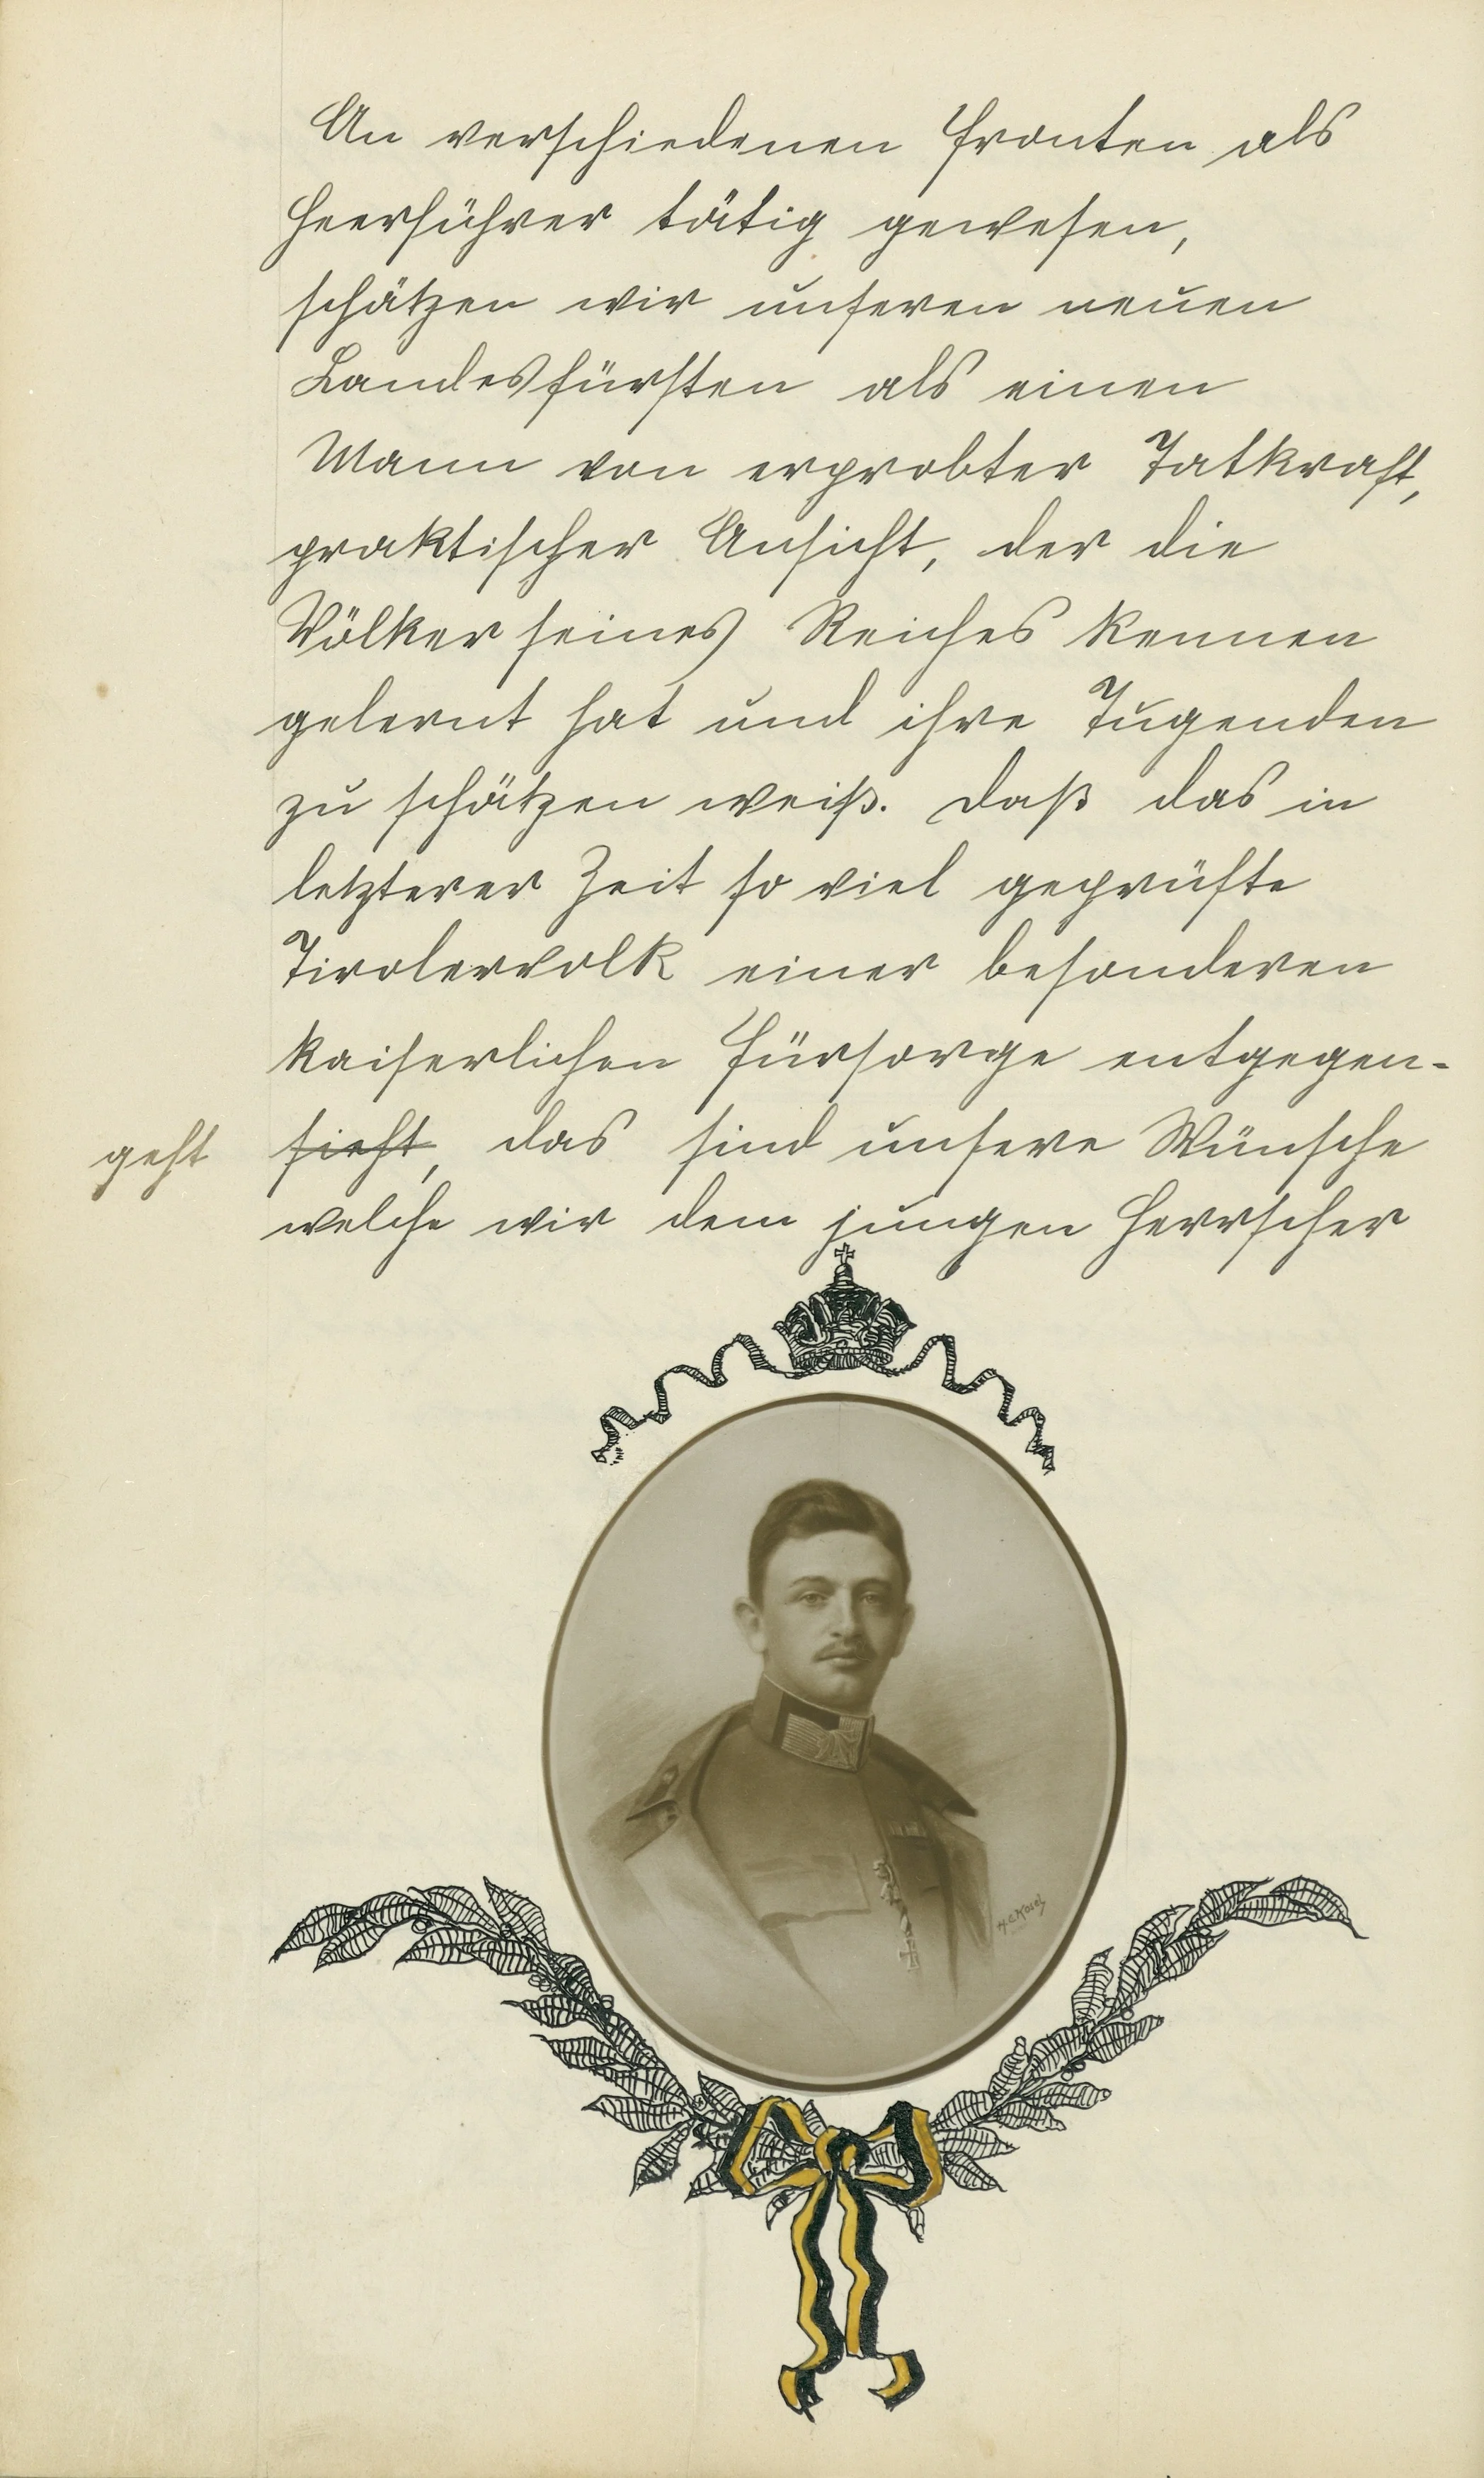 An verschiedenen Fronten als
Heerführer tätig gewesen,
schätzen wir unseren neuen
Landesfürsten als einen
Mann von erprobter Tatkraft,
praktischer Ansicht, der die
Völker seines Reiches kennen
gelernt hat und ihre Tugenden
zu schätzen weiß. Daß das in
letzterer Zeit so viel geprüfte
Tirolervolk einer besonderen
kaiserlichen Fürsorge entgegen-
geht sieht, das sind unsere Wünsche
welche wir dem jungen Herrscher
H.C. Kosel